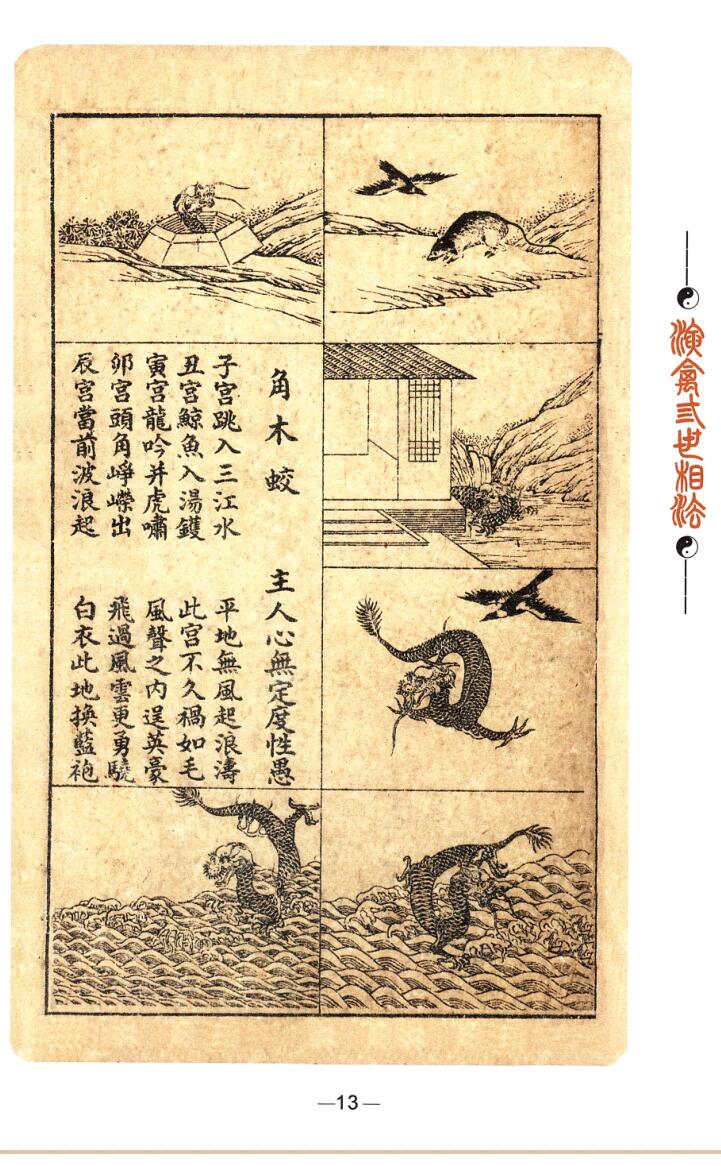 角木蛟 主人心無定度性愚
子宮跳入三江水 平地無風起浪濤
丑宮鯨魚入湯鑊 此宮不久禍如毛
寅宮龍吟并虎嘯 風聲之內逞英豪
卯宮頭角崢嶸出 飛過風雲更勇驍
辰宮當前波浪起 白衣此地換藍袍
演禽弍世相法
—13—